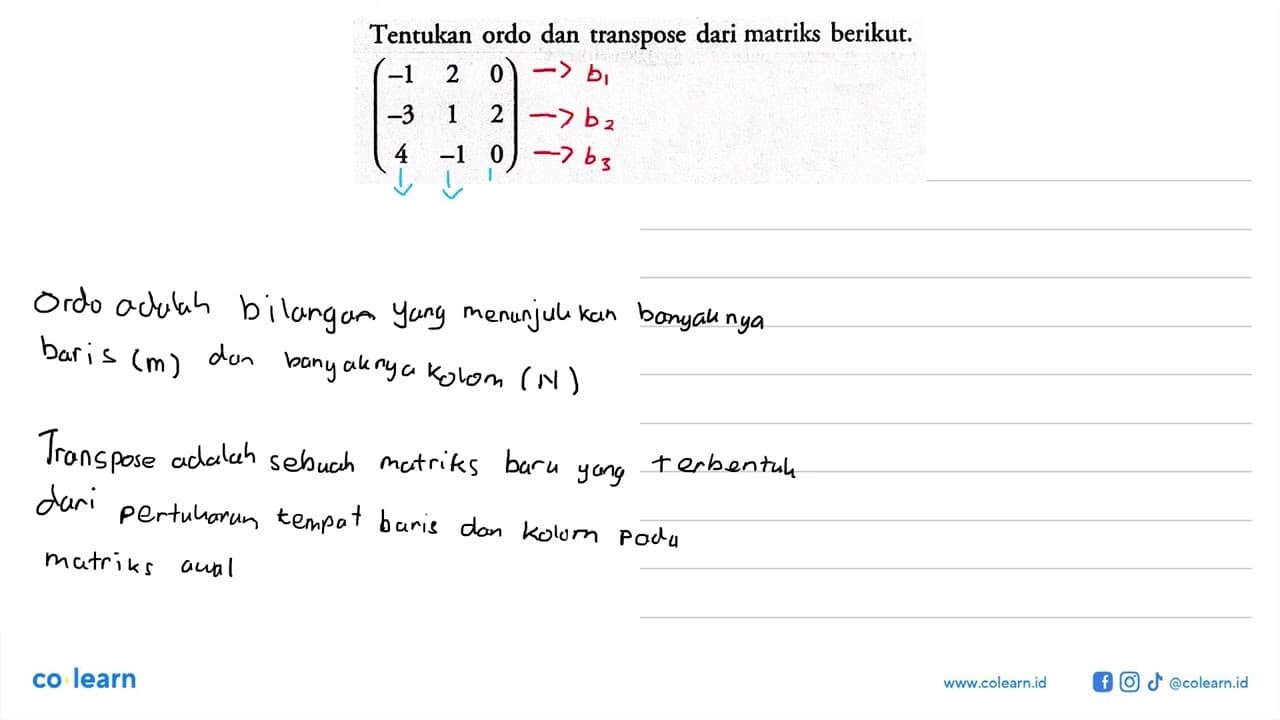 Tentukan ordo dan transpose dari matriks berikut.
-1 2 0 -> b1
-3 1 2 -> b2
4 -1 0 -> b3
Ordo adalah bilangan yang menunjukkan banyaknya
baris (m) dan banyaknya kolom (N)
Transpose adalah sebuah matriks baru yang terbentuk
dari pertukaran tempat baris dan kolom pada
matriks awal
co learn
www.colearn.id @colearn.id